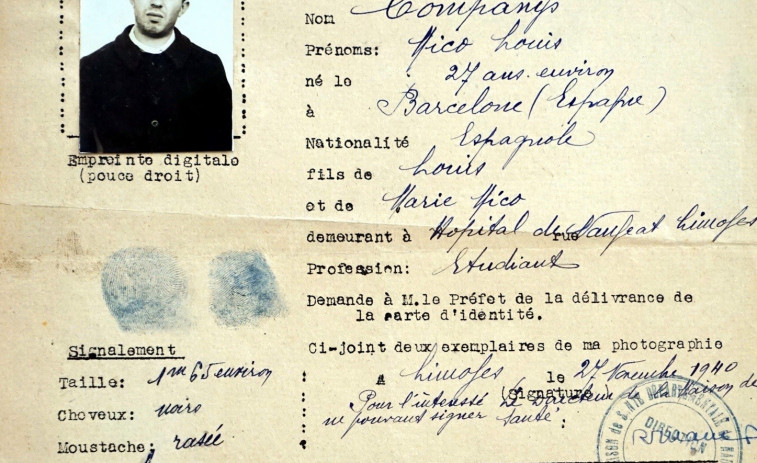 Nom Companys
Prénoms: Mico Louis
né le 27 ans environ
à Barcelone (Espagne)
Nationalité Espagnole
fils de Louis
et de Marie Mico
demeurant à Hopital de Naugeat Limoges
rue
Profession: Etudiant
Demande à M.le Préfet de la délivrance de
la carte d'identité.
Ci-joint deux exemplaires de ma photographie
A Limoges le 27 Novembre 1940
(Signature
Pour l'interessé Le Directeur de la Maison de
ne pouvant signer Santé:
Empreinte digitale
(pouce droit)
Signalement
Taille: 1m65 environ
Cheveux: noirs
Moustache: rasée
DIRECTION